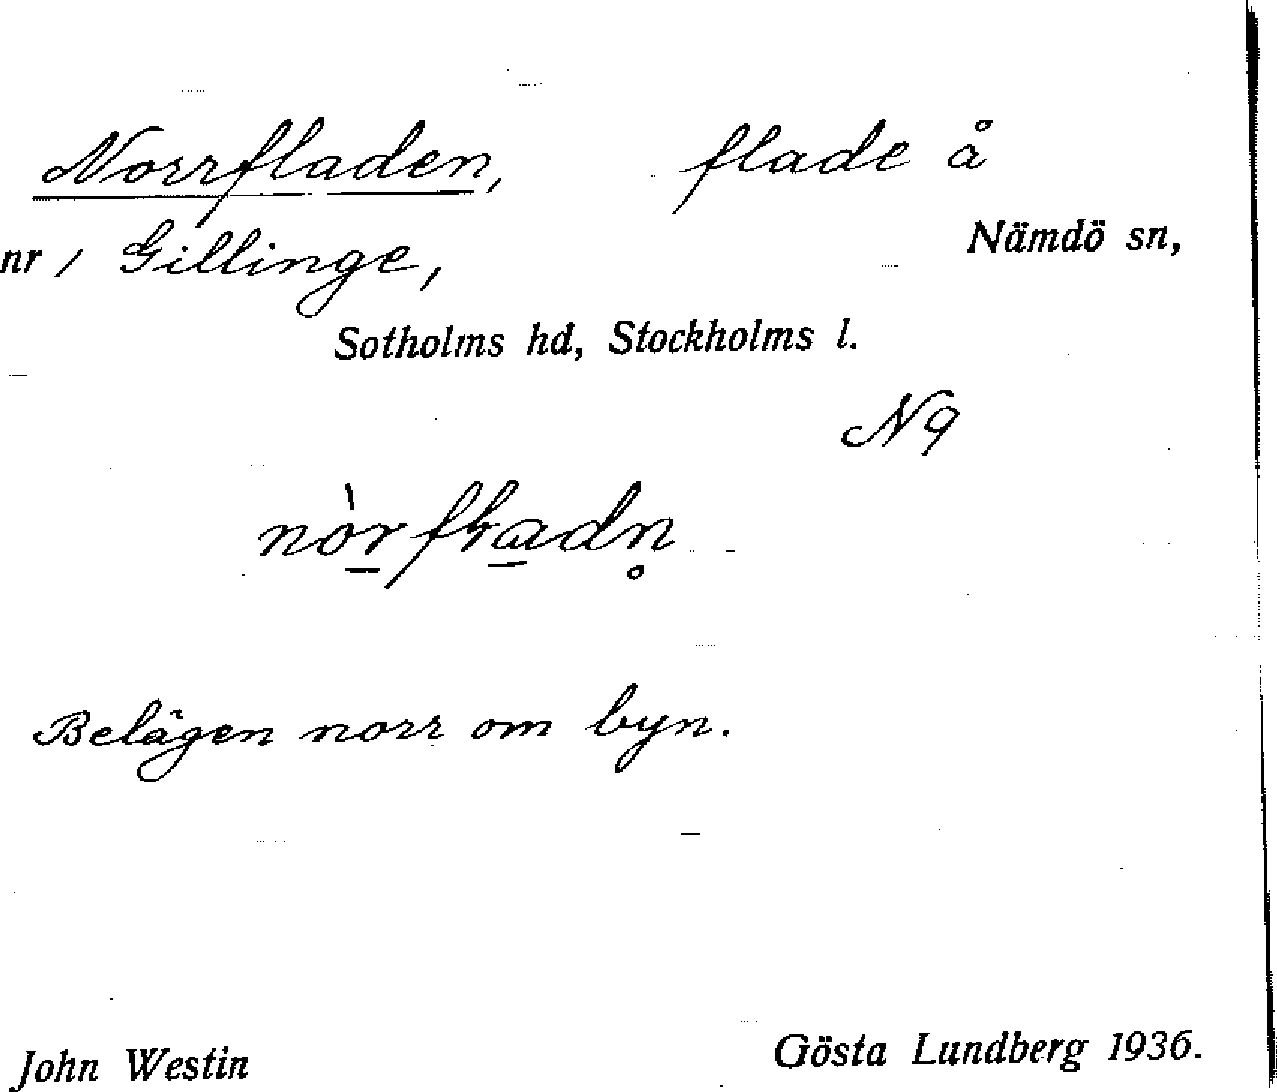 Norrfladen, flade å
nr 1 Gillinge, Nämdö sn,
Sotholms hd, Stockholms l.
N9
Belägen norr om byn.
John Westin Gösta Lundberg 1936.